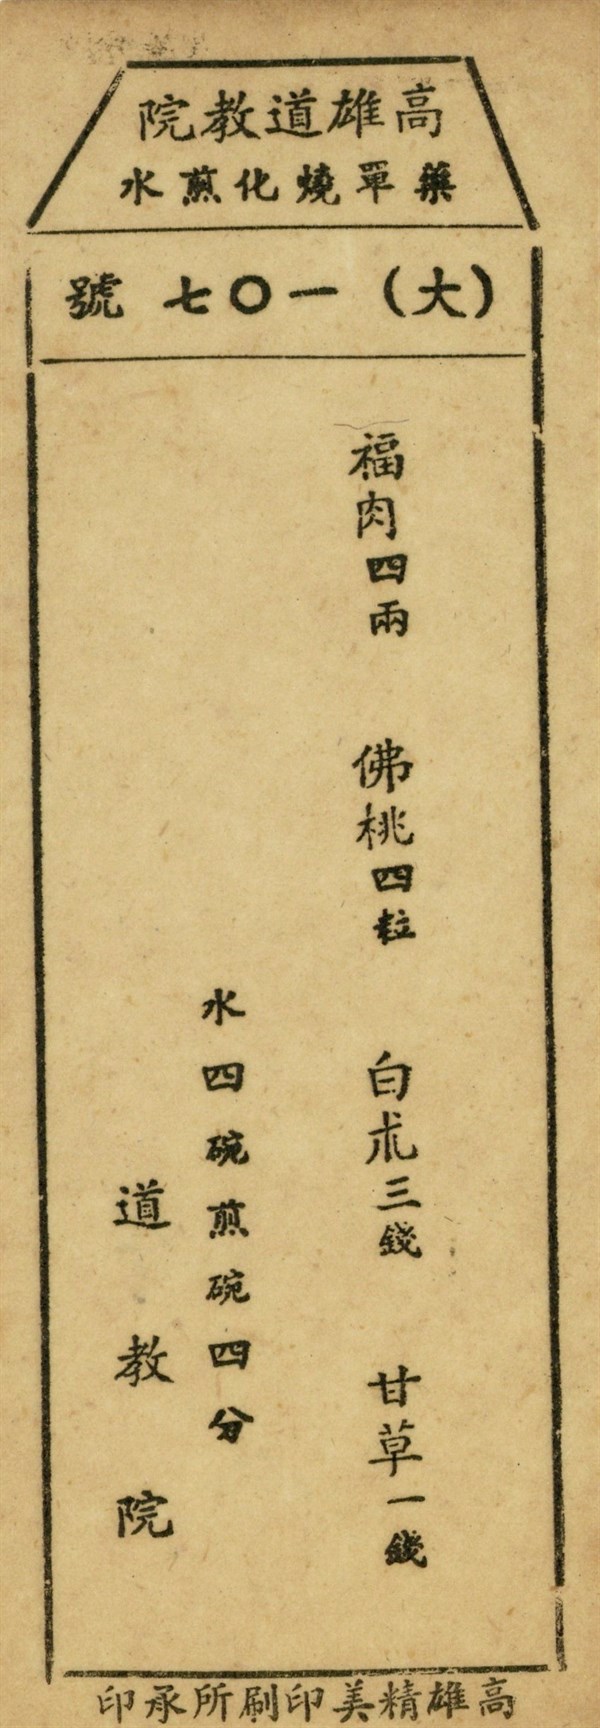 高雄道教院
藥單燒化煎水
（大）一〇七號
福肉四兩　佛桃四粒　白朮三錢　甘草一錢
水四碗煎碗四分
道教院
高雄精美印刷所承印